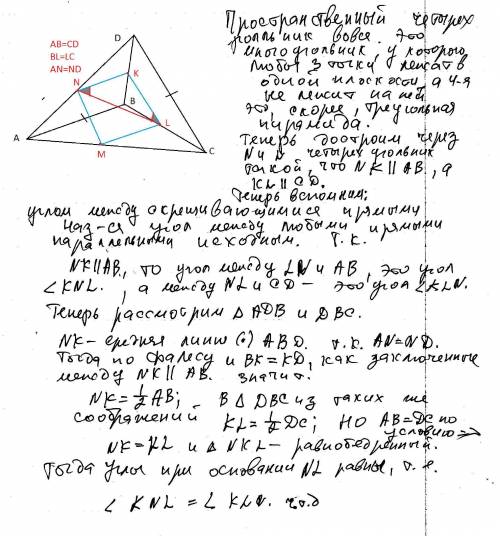 AB=CD
BL=LC
AN=ND
D
N
K
B
L
A
M
C
Пространственный четырех
угольник вовсе. Это
многоугольник, у которого
любые 3 точки лежат в
одной плоскости а 4-я
не лежит на ней
это, скорее, треугольная
пирамида.
Теперь достроим через
N и L четырехугольник
такой, что NK || AB, а
KL || CD.
Теперь вспомним:
углом между скрещивающимися прямыми
наз-ся угол между любыми прямыми
параллельными исходным. Т.К.
NK||AB, то угол между LN и AB, это угол
∠KNL, а между NL и CD - это угол ∠KLN.
Теперь рассмотрим Δ ADB и DBC.
NK- средняя линия ABD. т.к. AN=ND.
Тогда по фалесу и BK=KD, как заключенные
между NK || AB. значит.
NK=½AB; В Δ DBC из таких же
соображений KL=½DC; НО AB=DC по
условию ⇒
NK=KL и Δ NKL- равнобедренный.
Тогда углы при основании NL равны, т.е.
∠ KNL = ∠ KLN. ч.т.д